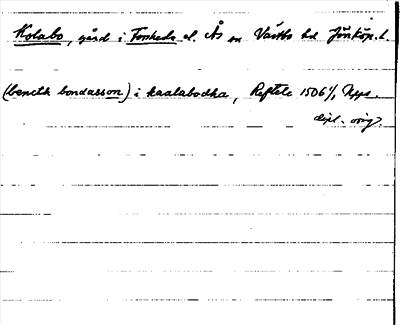 Kolabo, gård i Forsheda el. Ås sn Västbo hd Jönköp. l.
(benctk bondasson) i kaalabodha, Reftele 1506 1/1, Upps.
dipl. orig.